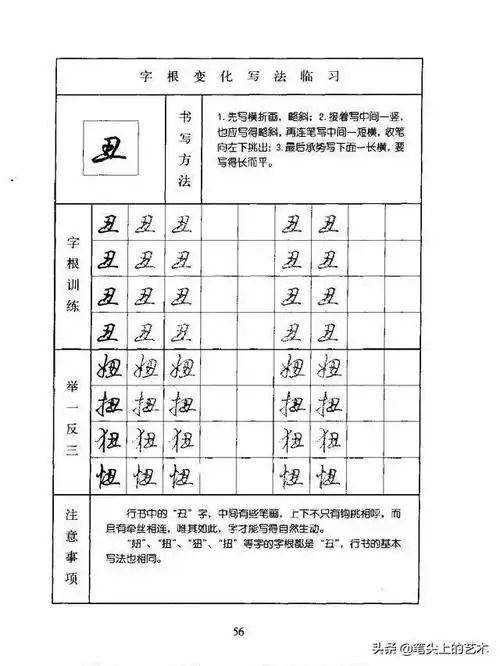 字根变化写法临习
丑
书写方法
1.先写横折画，略斜；2.接着写中间一竖，
也应写得略斜，再连笔写中间一短横，收笔
向左下挑出；3.最后承势写下面一长横，要
写得长而平。
字根训练
丑 丑 丑 丑 丑
丑 丑 丑 丑 丑
丑 丑 丑 丑 丑
丑 丑 丑 丑 丑
举一反三
妞 妞 妞 妞 妞
扭 扭 扭 扭 扭
狃 狃 狃 狃 狃
忸 忸 忸 忸 忸
注意事项
行书中的“丑”字，中间有些笔画，上下不只有钩挑相呼，而
且有牵丝相连，唯其如此，字才能写得自然生动。
“妞”、“扭”、“狃”、“扭”等字的字根都是“丑”，行书的基本
写法也相同。
56
头条@笔尖上的艺术